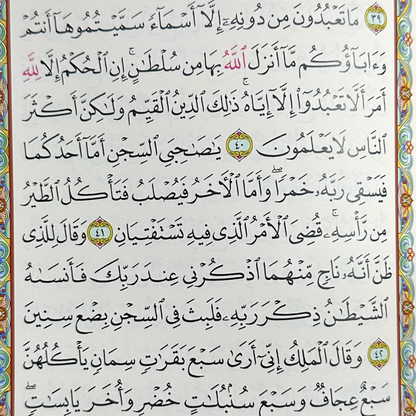 ٣٩ مَا تَعۡبُدُونَ مِن دُونِهِۦٓ إِلَّآ أَسۡمَآءٗ سَمَّيۡتُمُوهَآ أَنتُمۡ
وَءَابَآؤُكُم مَّآ أَنزَلَ ٱللَّهُ بِهَا مِن سُلۡطَٰنٍۚ إِنِ ٱلۡحُكۡمُ إِلَّا لِلَّهِ
أَمَرَ أَلَّا تَعۡبُدُوٓاْ إِلَّآ إِيَّاهُۚ ذَٰلِكَ ٱلدِّينُ ٱلۡقَيِّمُ وَلَٰكِنَّ أَكۡثَرَ
ٱلنَّاسِ لَا يَعۡلَمُونَ ٤٠ يَٰصَٰحِبَيِ ٱلسِّجۡنِ أَمَّآ أَحَدُكُمَا
فَيَسۡقِي رَبَّهُۥ خَمۡرٗاۖ وَأَمَّا ٱلۡأٓخَرُ فَيُصۡلَبُ فَتَأۡكُلُ ٱلطَّيۡرُ
مِن رَّأۡسِهِۦۚ قُضِيَ ٱلۡأَمۡرُ ٱلَّذِي فِيهِ تَسۡتَفۡتِيَانِ ٤١ وَقَالَ لِلَّذِي
ظَنَّ أَنَّهُۥ نَاجٖ مِّنۡهُمَا ٱذۡكُرۡنِي عِندَ رَبِّكَ فَأَنسَىٰهُ
ٱلشَّيۡطَٰنُ ذِكۡرَ رَبِّهِۦ فَلَبِثَ فِي ٱلسِّجۡنِ بِضۡعَ سِنِينَ
٤٢ وَقَالَ ٱلۡمَلِكُ إِنِّيٓ أَرَىٰ سَبۡعَ بَقَرَٰتٖ سِمَانٖ يَأۡكُلُهُنَّ
سَبۡعٌ عِجَافٞ وَسَبۡعَ سُنۢبُلَٰتٍ خُضۡرٖ وَأُخَرَ يَابِسَٰتٖۖ